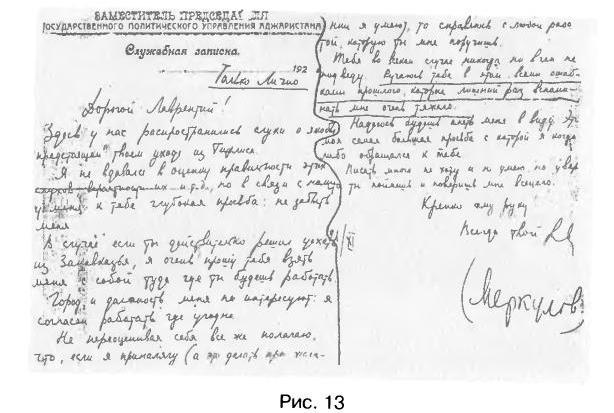 ЗАМЕСТИТЕЛЬ ПРЕДСЕДАТ ЛЯ
ГОСУДАРСТВЕННОГО ПОЛИТИЧЕСКОГО УПРАВЛЕНИЯ АДЖАРИСТАНА
Служебная записка.
192
Только Лично
Дорогой Лаврентий!
Здесь у нас распространились слухи о якобы
предстоящем твоем уходе из Тифлиса.
Я не вдаюсь в оценку правильности этих
слухов и т.д., но в связи с ними
у меня к тебе глубокая просьба: не забыть
меня
В случае если ты действительно решил уехать
из Закавказья, я очень прошу тебя взять
меня с собой туда где ты будешь работать.
Город и должность меня не интересуют: я
согласен работать где угодно.
Не переоценивая себя все же полагаю,
что, если я приналягу (а это делать при жела-
нии я умею), то справлюсь с любой рабо
той, которую ты мне поручишь.
Тебя во всяком случае никогда ни в чем не
подведу. Ручаюсь тебе в этом всеми ошиб-
ками прошлого, которые лишний раз вспоми-
нать мне очень тяжело.
Надеюсь будешь иметь меня в виду. Это
моя самая большая просьба с которой я когда
либо обращался к тебе.
Писать много не хочу и не умею, но увер
ты поймешь и поверишь мне всецело.
Крепко жму руку
Всегда твой
(Меркулов)
Рис. 13